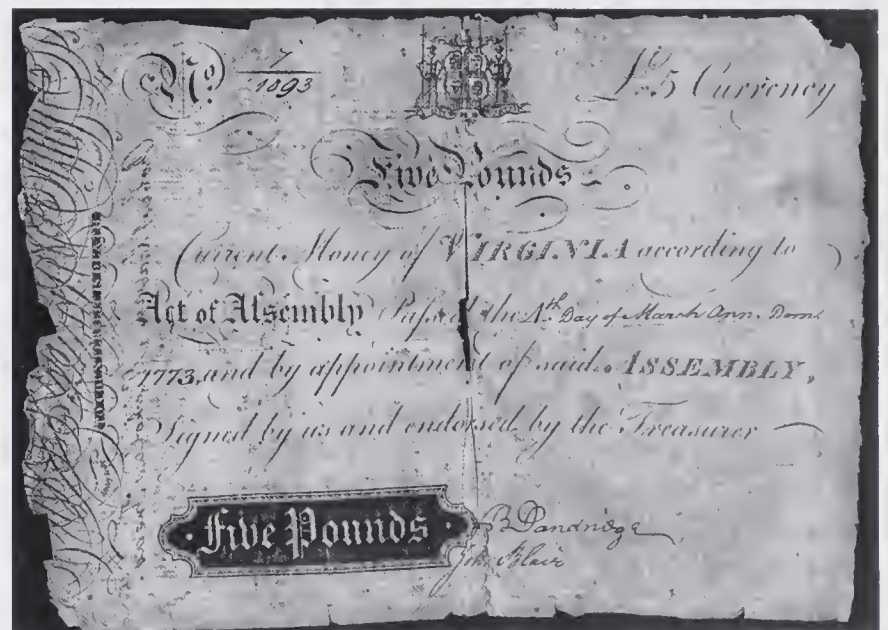 No. 7
1093
£5 Currency
Five Pounds
Current Money of VIRGINIA according to
Act of Assembly Passed the 4th Day of March Ann. Dom.
1773, and by appointment of said ASSEMBLY,
Signed by us and endorsed by the Treasurer
Five Pounds
B Dandridge
Jno. Blair